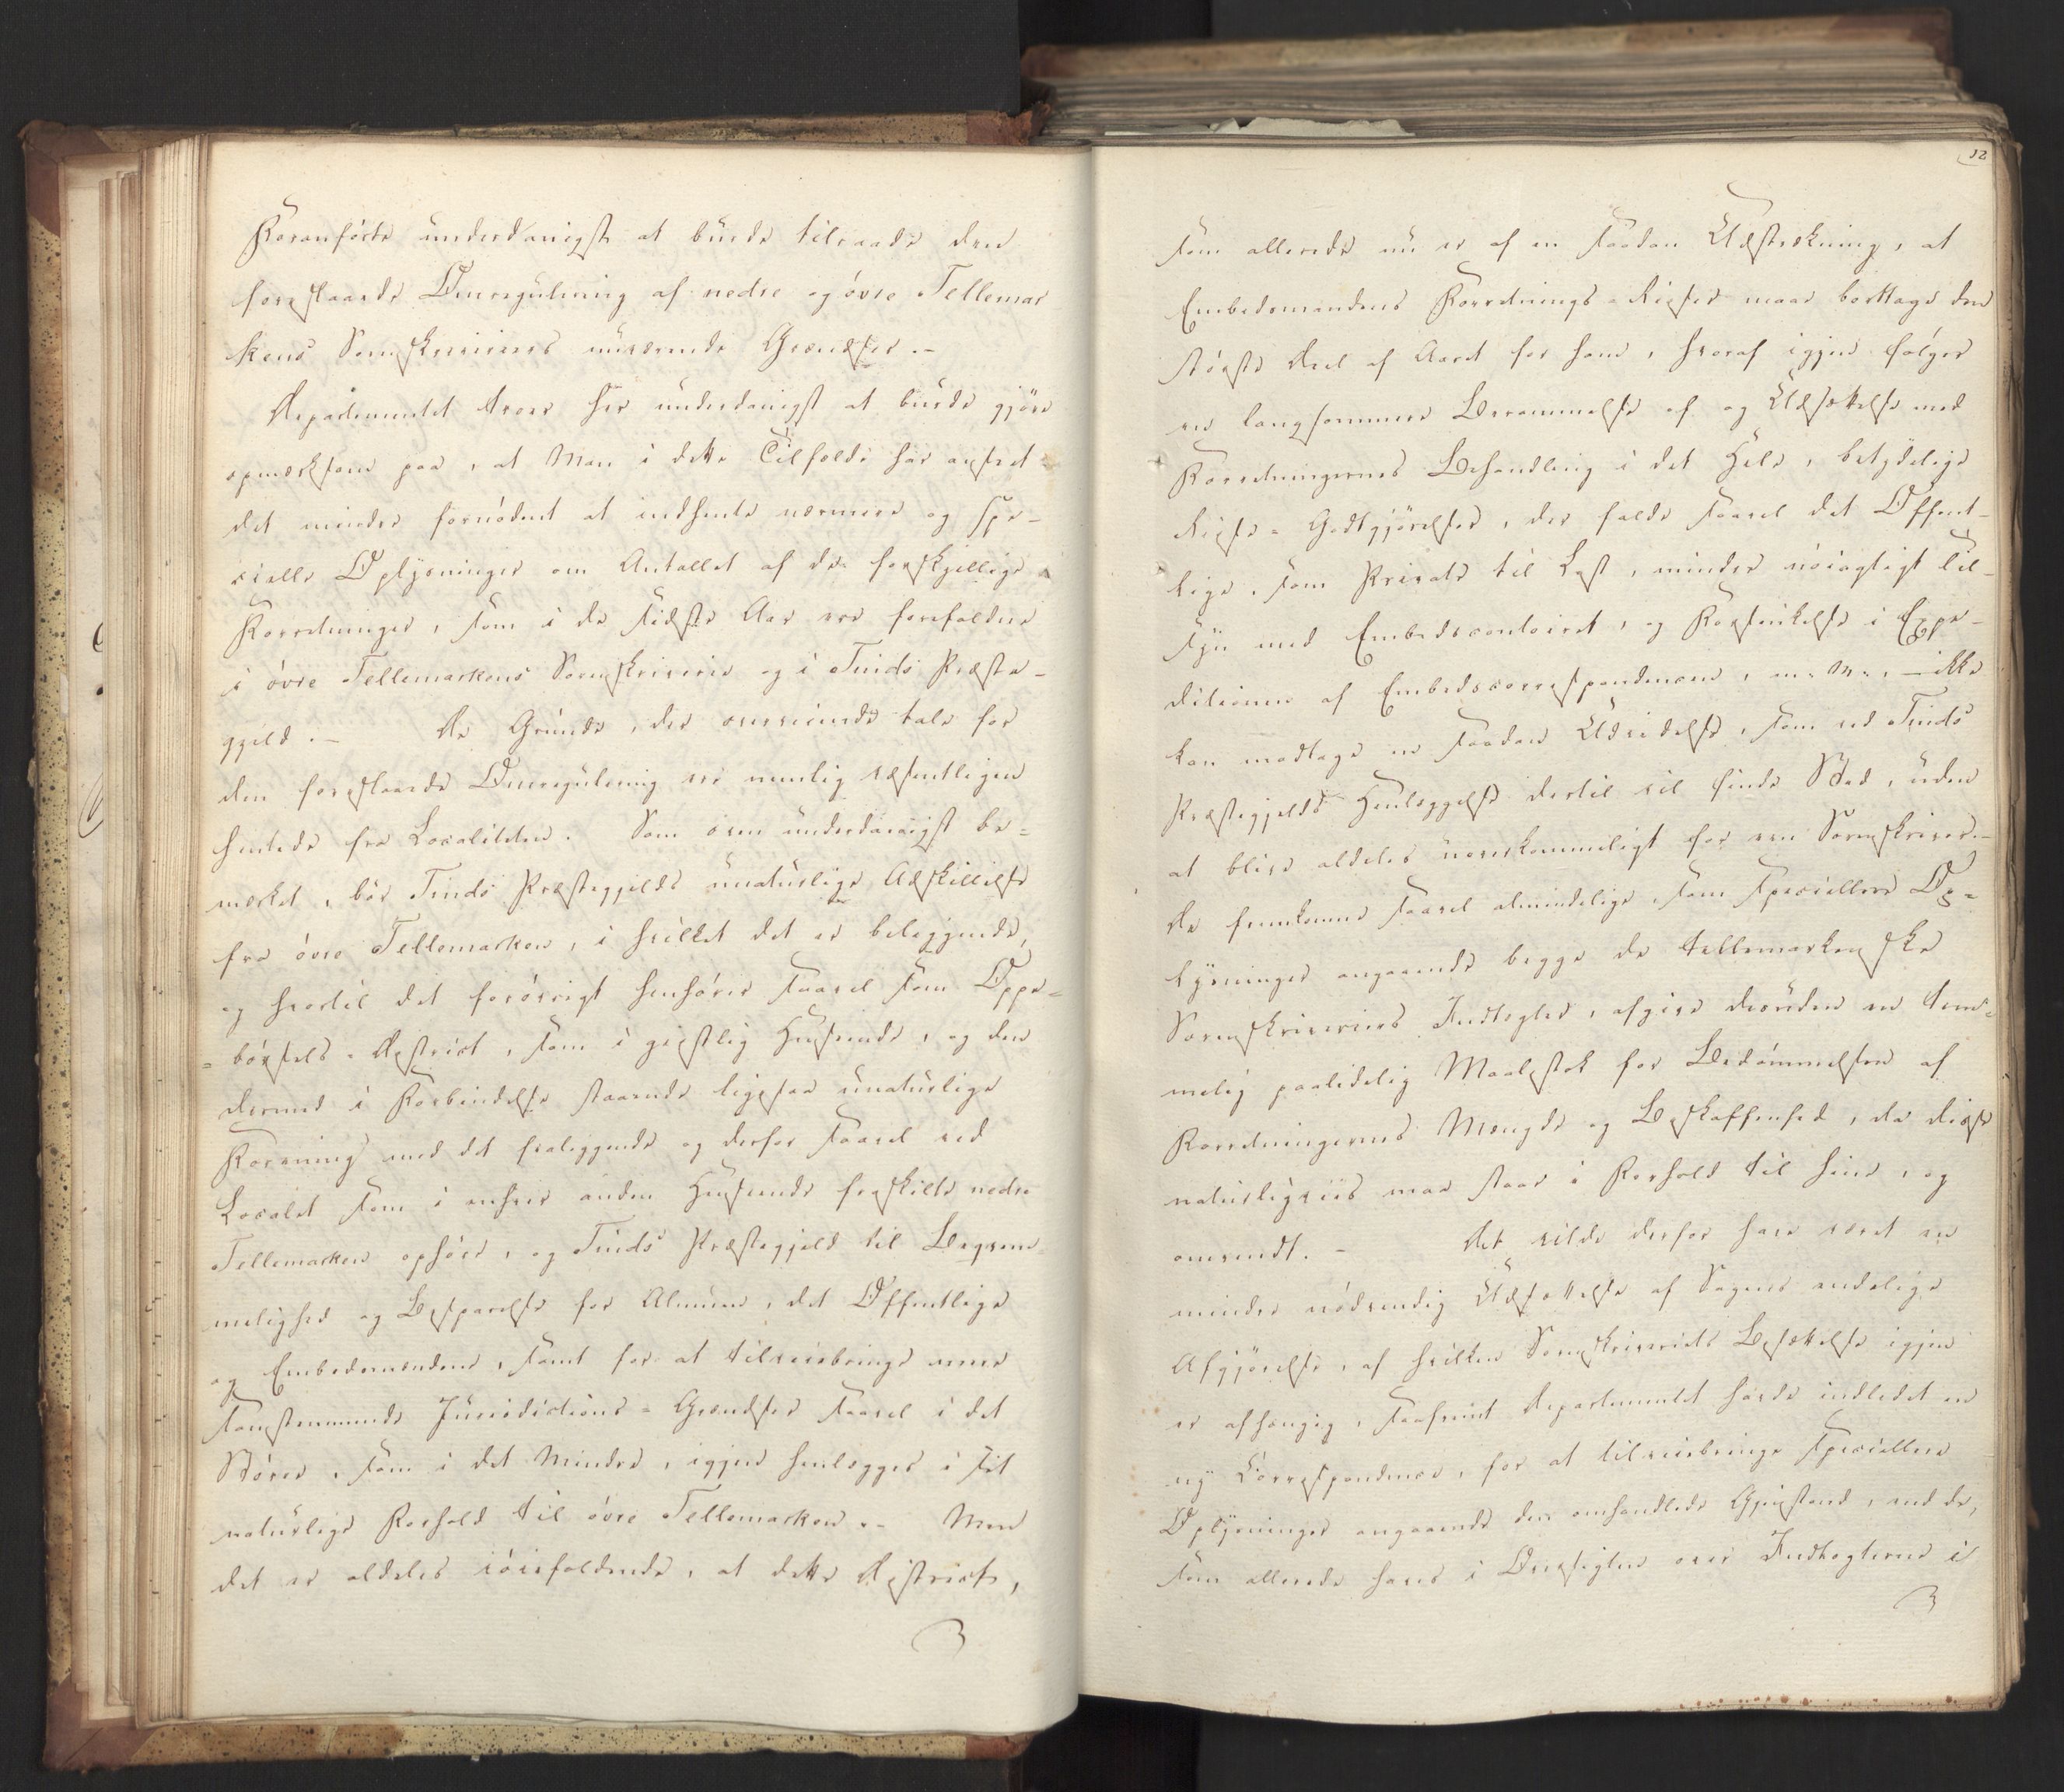 Foranförte underdanigst at burde tilraade den
foreslaaede Omregulering af nedre og övre Tellemar
kens Sorenskriveriers nuværende Grændser. -
Departementet troer her underdanigst at burde gjöre
opmærksom paa, at Man i dette Tilfælde har anseet
det mindre fornödent at indhente nærmere og spe-
cielle Oplysninger om Antallet af de forskjellige
Forretninger, som i de sidste Aar ere forefaldne
i övre Tellemarkens Sorenskriverie og i Tinds Præste-
gjeld. - De Grunde, der overveiende tale for
den foreslaaede Omregulering ere nemlig væsentligen
hentede fra Localiteten. Som oven underdanigst be-
mærket, bör Tinds Præstegjelds unaturlige Adskillelse
fra övre Tellemarken, i hvilket det er beliggende,
og hvortil det forövrigt henhörer saavel som Oppe-
börsels-District, som i geistlig Henseende, og den
dermed i Forbindelse staaende ligesaa unaturlige
Forening med det fraliggende og derfor saavel ved
Localet som i enhver anden Henseende fraskilte nedre
Tellemarken ophöre, og Tinds Præstegjeld til Beqvem-
melighed og Besparelse for Almuen, det Offentlige
og Embedsmændene, samt for at tilveiebringe mere
samstemmende Jurisdictions-Grændser saavel i det
Större, som i det Mindre, igjen henlægges i sit
naturlige Forhold til övre Tellemarken. - Men
det er aldeles iöinefaldende, at dette District,
12
som allerede nu er af en saadan Udstrækning, at
Embedsmandens Forretnings-Reiser maae borttage den
störste Deel af Aaret for ham, hvoraf igjen fölger
en langsommere Berammelse af og Udsættelse med
Forretningernes Behandling i det Hele, betydelige
Reise-Godtgjörelser, der falde saavel det Offent-
lige, som Private til Last, mindre nöiagtigt Til-
syn med Embedscontoiret, og Forsinkelse i Expe-
ditionen af Embedscorrespondencen, m. M., - ikke
kan modtage en saadan Udvidelse, som ved Tinds
Præstegjelds Henlæggelse dertil vil finde Sted, uden
at blive aldeles uoverkommeligt for een Sorenskriver. -
De fremkomne saavel almindelige, som specielle Op-
lysninger angaaende begge de tellemarkenske
Sorenskriveriers Indtægter, afgive desuden en tem-
melig paalidelig Maalestok for Bedömmelsen af
Forretningernes Mængde og Beskaffenhed, da disse
naturligviis maa staae i Forhold til hine, og
omvendt. - Det vilde derfor have været en
mindre nödvendig Udsættelse af Sagens endelige
Afgjörelse, af hvilken Sorenskriveriets Besættelse igjen
er afhængig, saafremt Departementet havde indledet en
ny Correspondence, for at tilveiebringe specielle
Oplysninger angaaende den omhandlede Gjenstand, end de,
som allerede haves i Oversigten over Indtægterne i